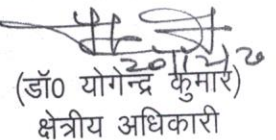 (डॉ0 योगेन्द्र कुमार)
क्षेत्रीय अधिकारी